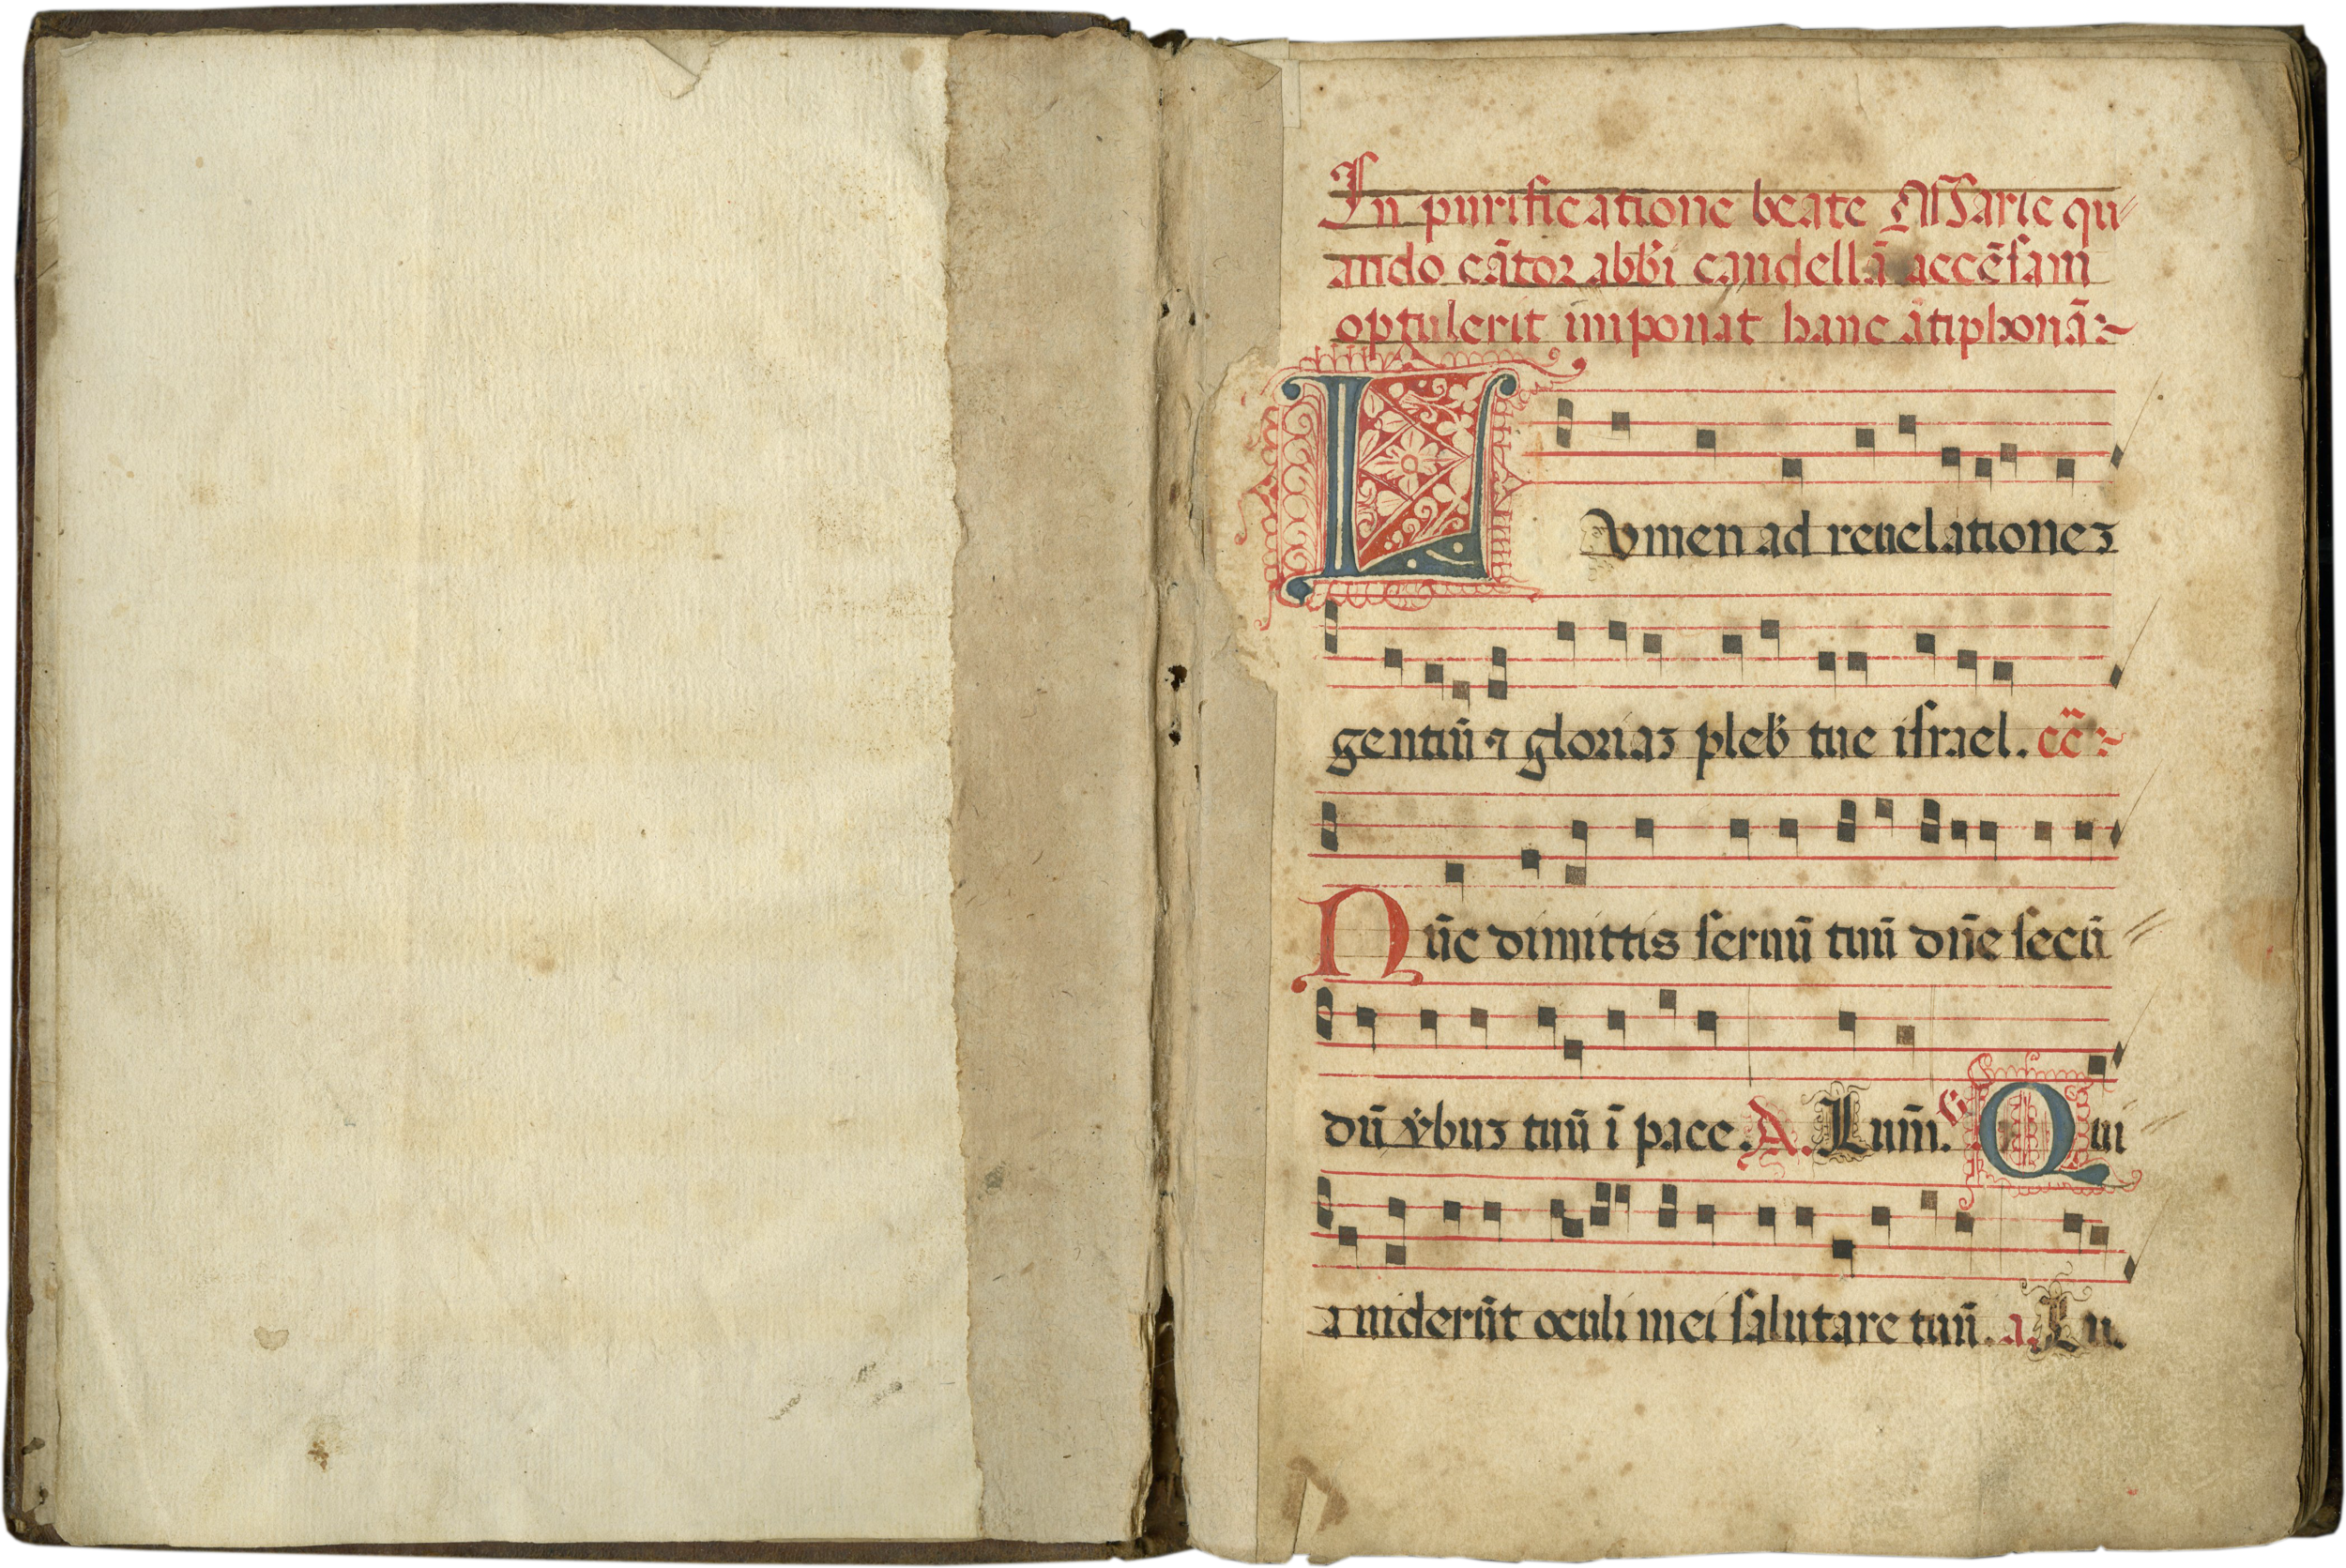 In purificatione beate Marie qu⸗
ando cãtor abb̃i candellã accẽsam
optulerit imponat hanc ãtiphonã:~
LVmen ad reuelationeʒ
gentiũ ⁊ gloriaʒ pleb̾ tue israel. ẽc̃:~
Nũc dimittis seruũ tuũ dñe secũ⸗
dũ v̾buʒ tuũ ĩ pace. A. Lum̃. V̾ Qui⸗
a uiderũt oculi mei salutare tuũ. a. Lu.